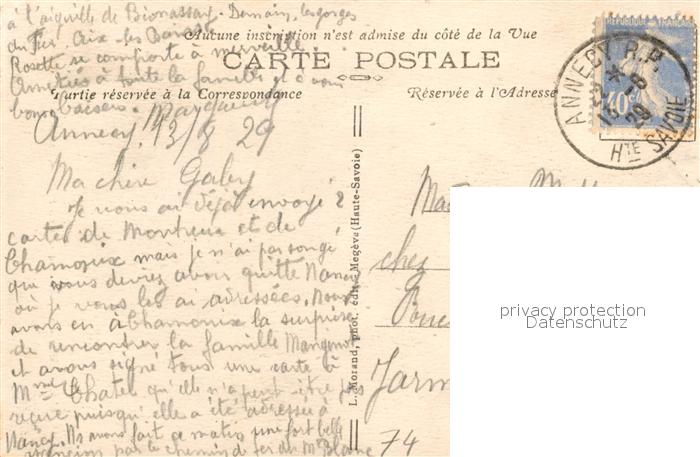 à l'aiguille de Bionassay. Demain, les gorges
du Fier. Aix-les-Bains.
Rosette se comporte à merveille
Amitiés à toute la famille et à vous
bons baisers. Marguerite
Aucune inscription n'est admise du côté de la Vue
CARTE POSTALE
Partie réservée à la Correspondance
Réservée à l'Adresse
40c
ANNECY R.P.
29
HTE SAVOIE
Annecy, 13/8 29
Ma chère Gaby
Je vous ai déjà envoyé 2
cartes de Montreux et de
Chamonix mais je n'ai pas songé
que vous deviez avoir quitté Nancy
où je vous les ai adressées. Nous
avons eu à Chamonix la surprise
de rencontrer la famille Mangenot
et avons signé tous une carte à
Mme Chatel qu'elle n'a peut être pas
reçue puisqu'elle a été adressée à
Nancy. Ns avons fait ce matin une fort belle
ascension par le chemin de fer du Mt Blanc
L. Morand, phot. édit., Megève (Haute-Savoie)
chez
Jarn
74
privacy protection
Datenschutz